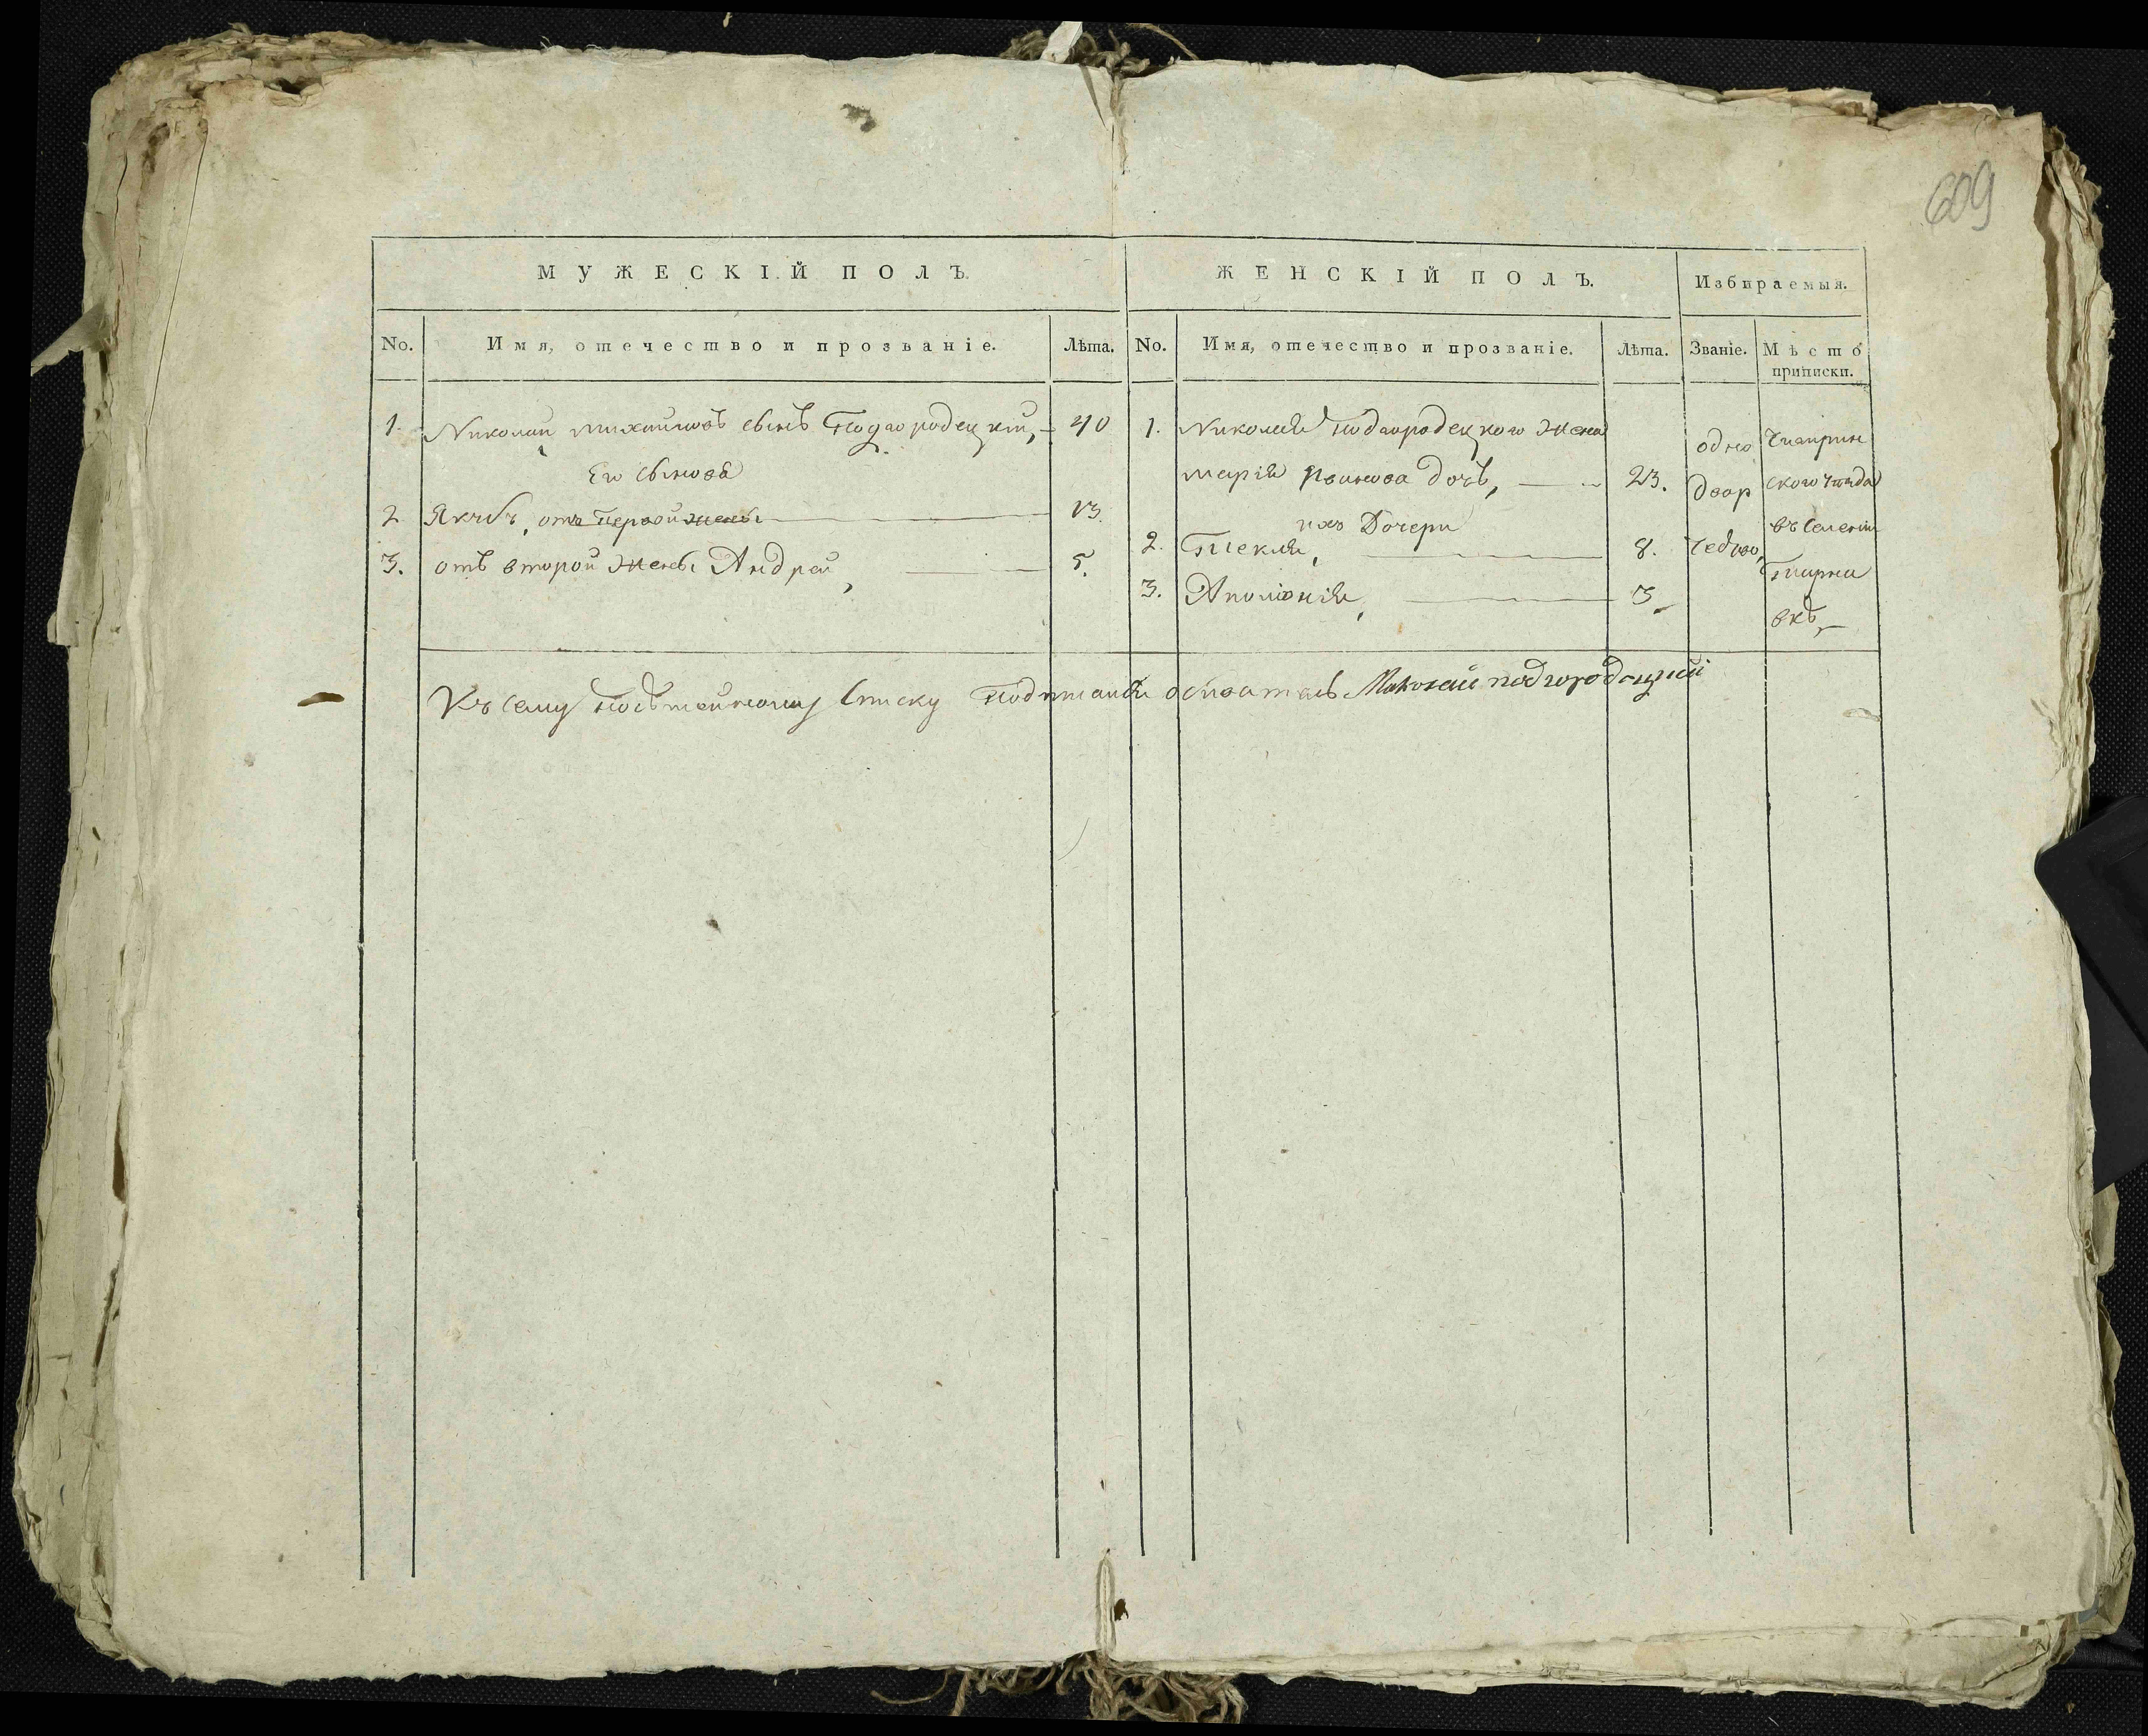 609
МУЖЕСКІЙ ПОЛЪ.
No. Имя, отечество и прозваніе. Лѣта.
1. Николай Михайловъ сынъ Подгородецкий, 40
Его сыновья
2. Якубъ, отъ первой жены 13.
3. отъ второй жены Андрей, 5.
ЖЕНСКІЙ ПОЛЪ.
No. Имя, отечество и прозваніе. Лѣта.
1. Николая Подгородецкого жена
Марія Иванова дочь, 23.
ихъ Дочери
2. Текля, 8.
3. Аполіонія, 3
Избираемыя.
Званіе. Мѣсто
приписки.
одно
двор
Чигирин
ского уѣзда
въ селеніи
вкѣ
Къ сему посѣмейному списку Николай подгородецкий